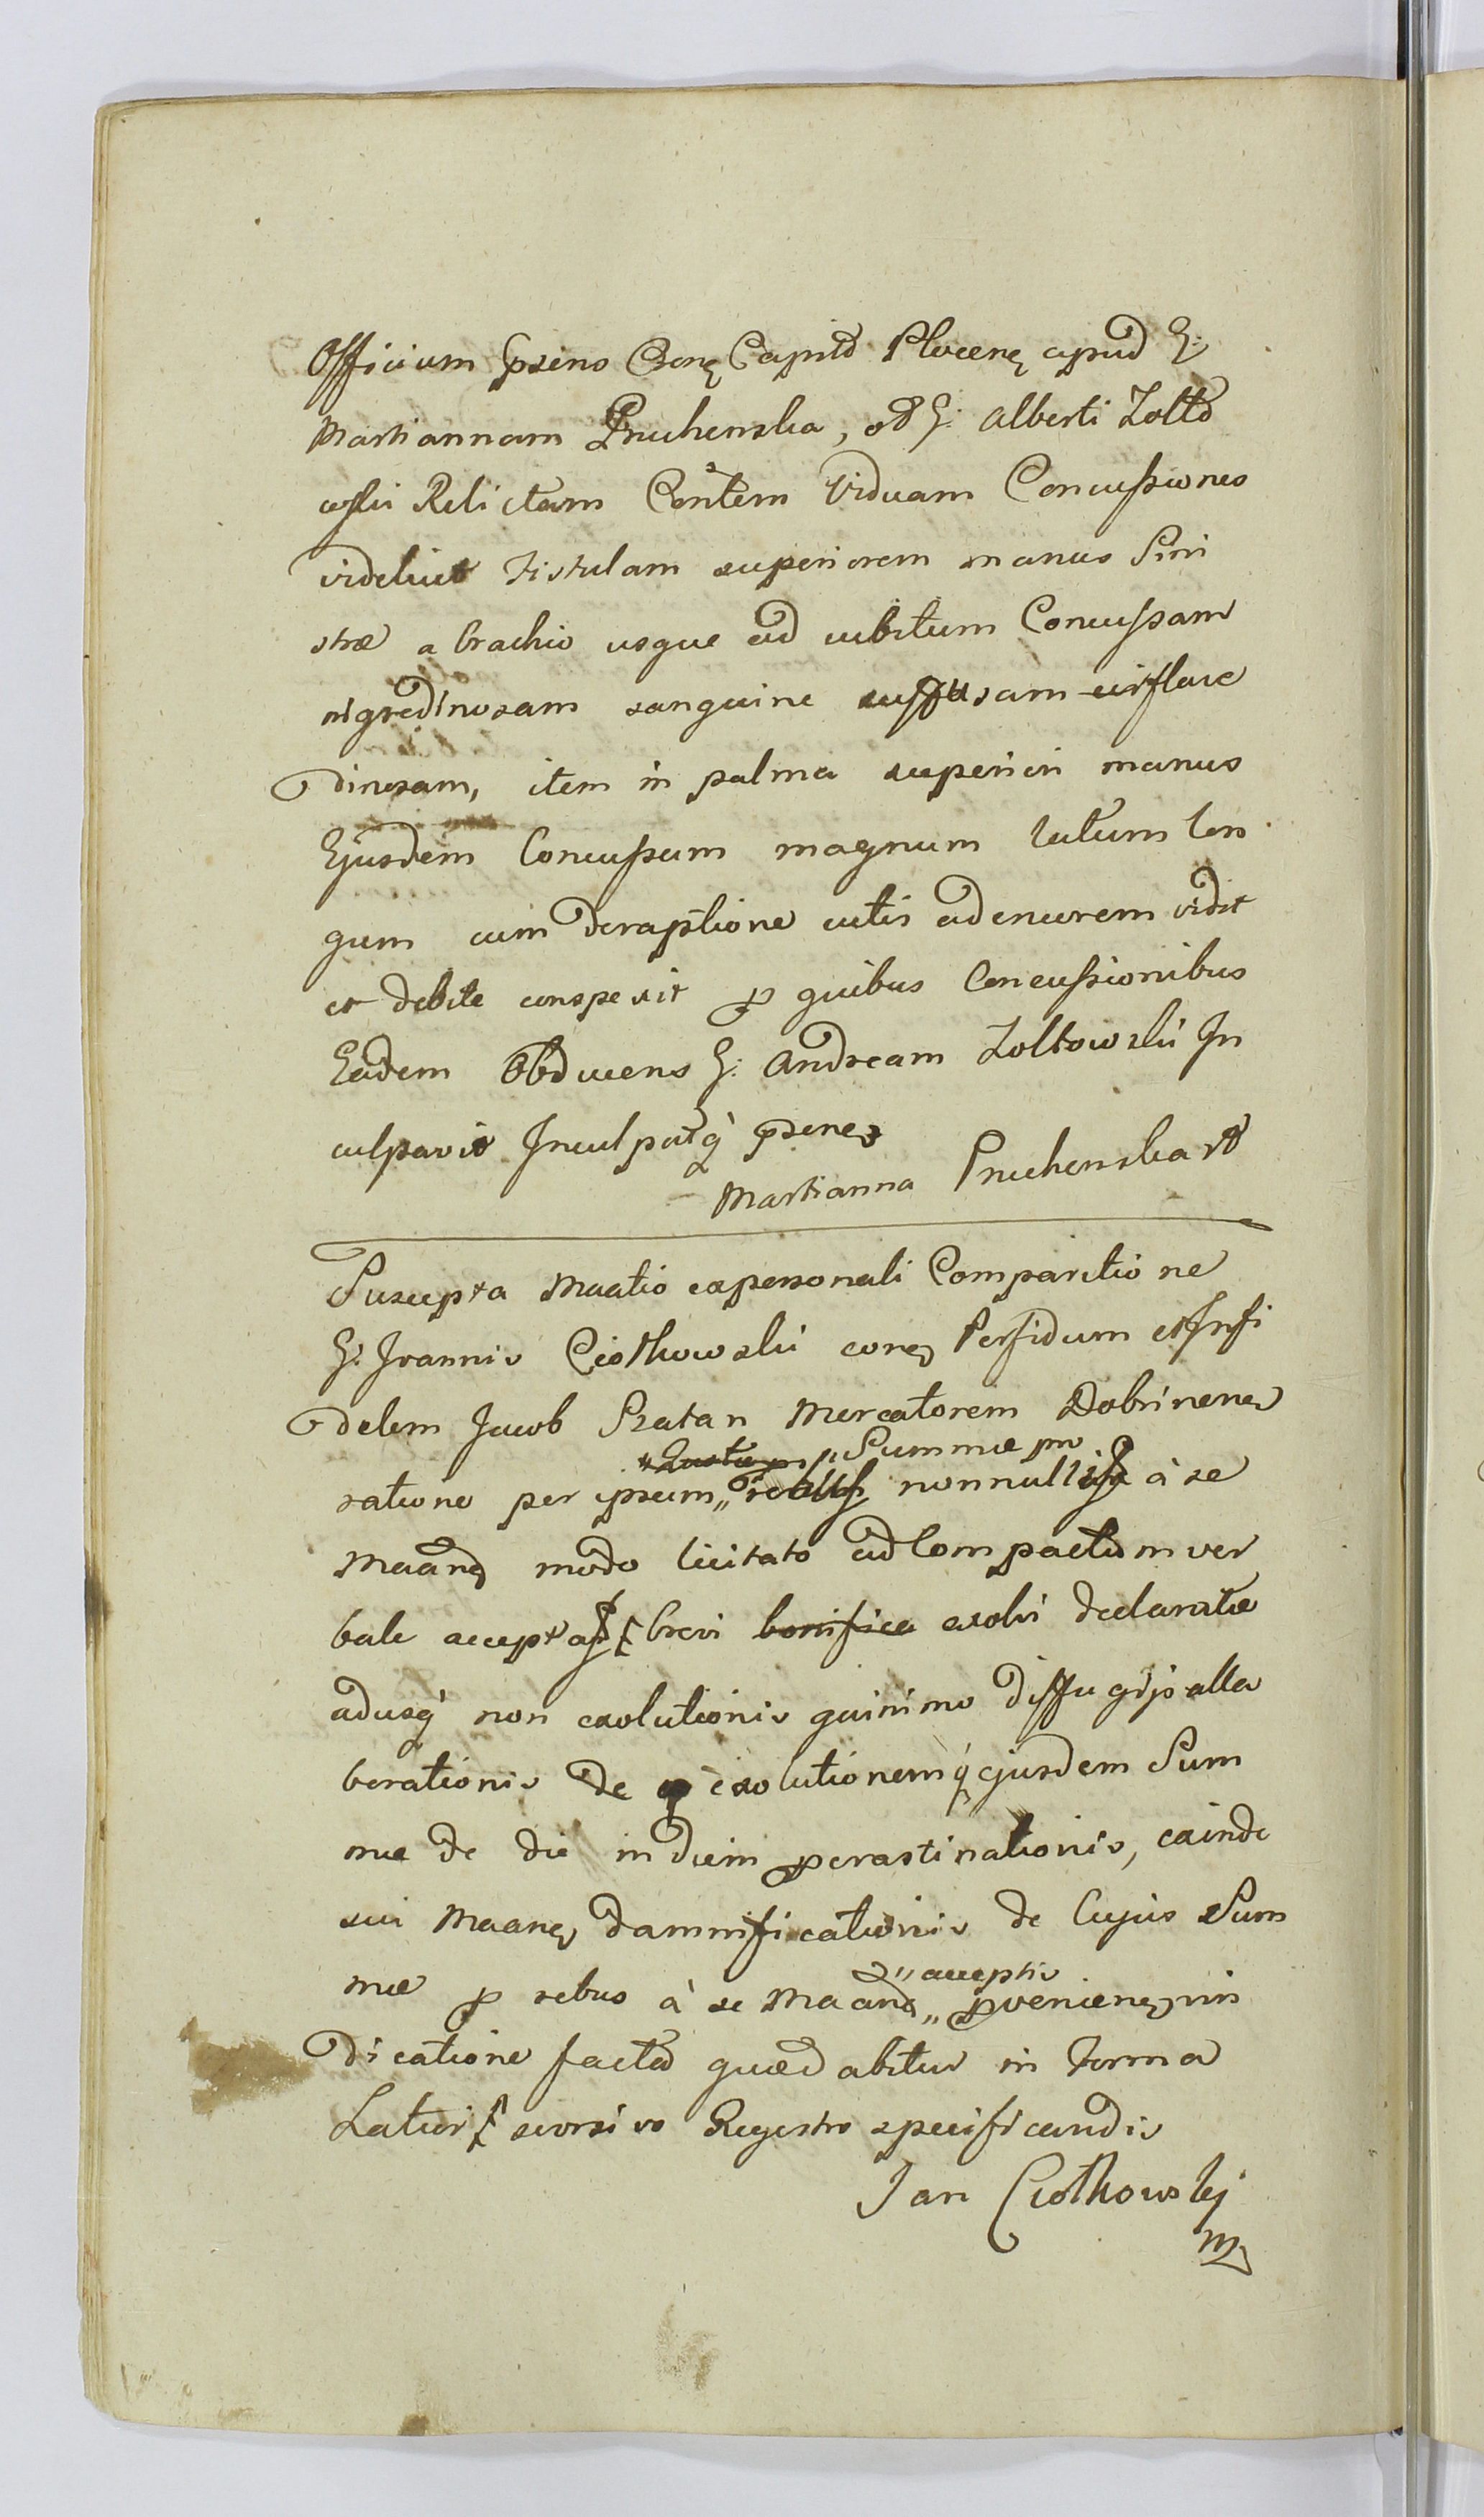 Officium Præns Crens Capitle Plocens apud G:
Martiannam Pruchenska, olG: Alberti Zolto
wski Relictam Contem Viduam Concussiones
videlicet Fistulam superiorem manus Sini
stræ a brachio usque ad cubitum Concussam
nigredinosam sanguine suffusam eirflave
dinosam, item in palma superiori manus
Ejusdem Concussum magnum latum lon
gum cum deraptione cutis ad cruorem vidit
et debite conspexit p quibus Concussionibus
Eadem Obducens G: Andream Zoltowski In
culpavit Inculpatq præns
Martianna Pruchenska
Suscepta Maatio ex personali Comparitione
G: Joannis Ciołkowski cons Perfidum et Infi
delem Jacob Szatan Mercatorem Dobrinens
Summæ pro
ratione per ipsum „ rebus nonnullis à se
Maans modo licitato ad Compactum ver
bale accepta brevi bonifica exolvi declaratæ
adusq non exolutionis quinimo diffugijs alla
borationis de exolutionemq ejusdem Sum
mæ de die in diem pcrastinationis, exinde
sui Maans damnificationis de Cujus Sum
„ acceptis
mæ p rebus à se Maans „ pveniens vin
dicatione facta quæ dabitur in Forma
Latiori seorsivo Regestro specificandis
Jan Ciołkowskj
m